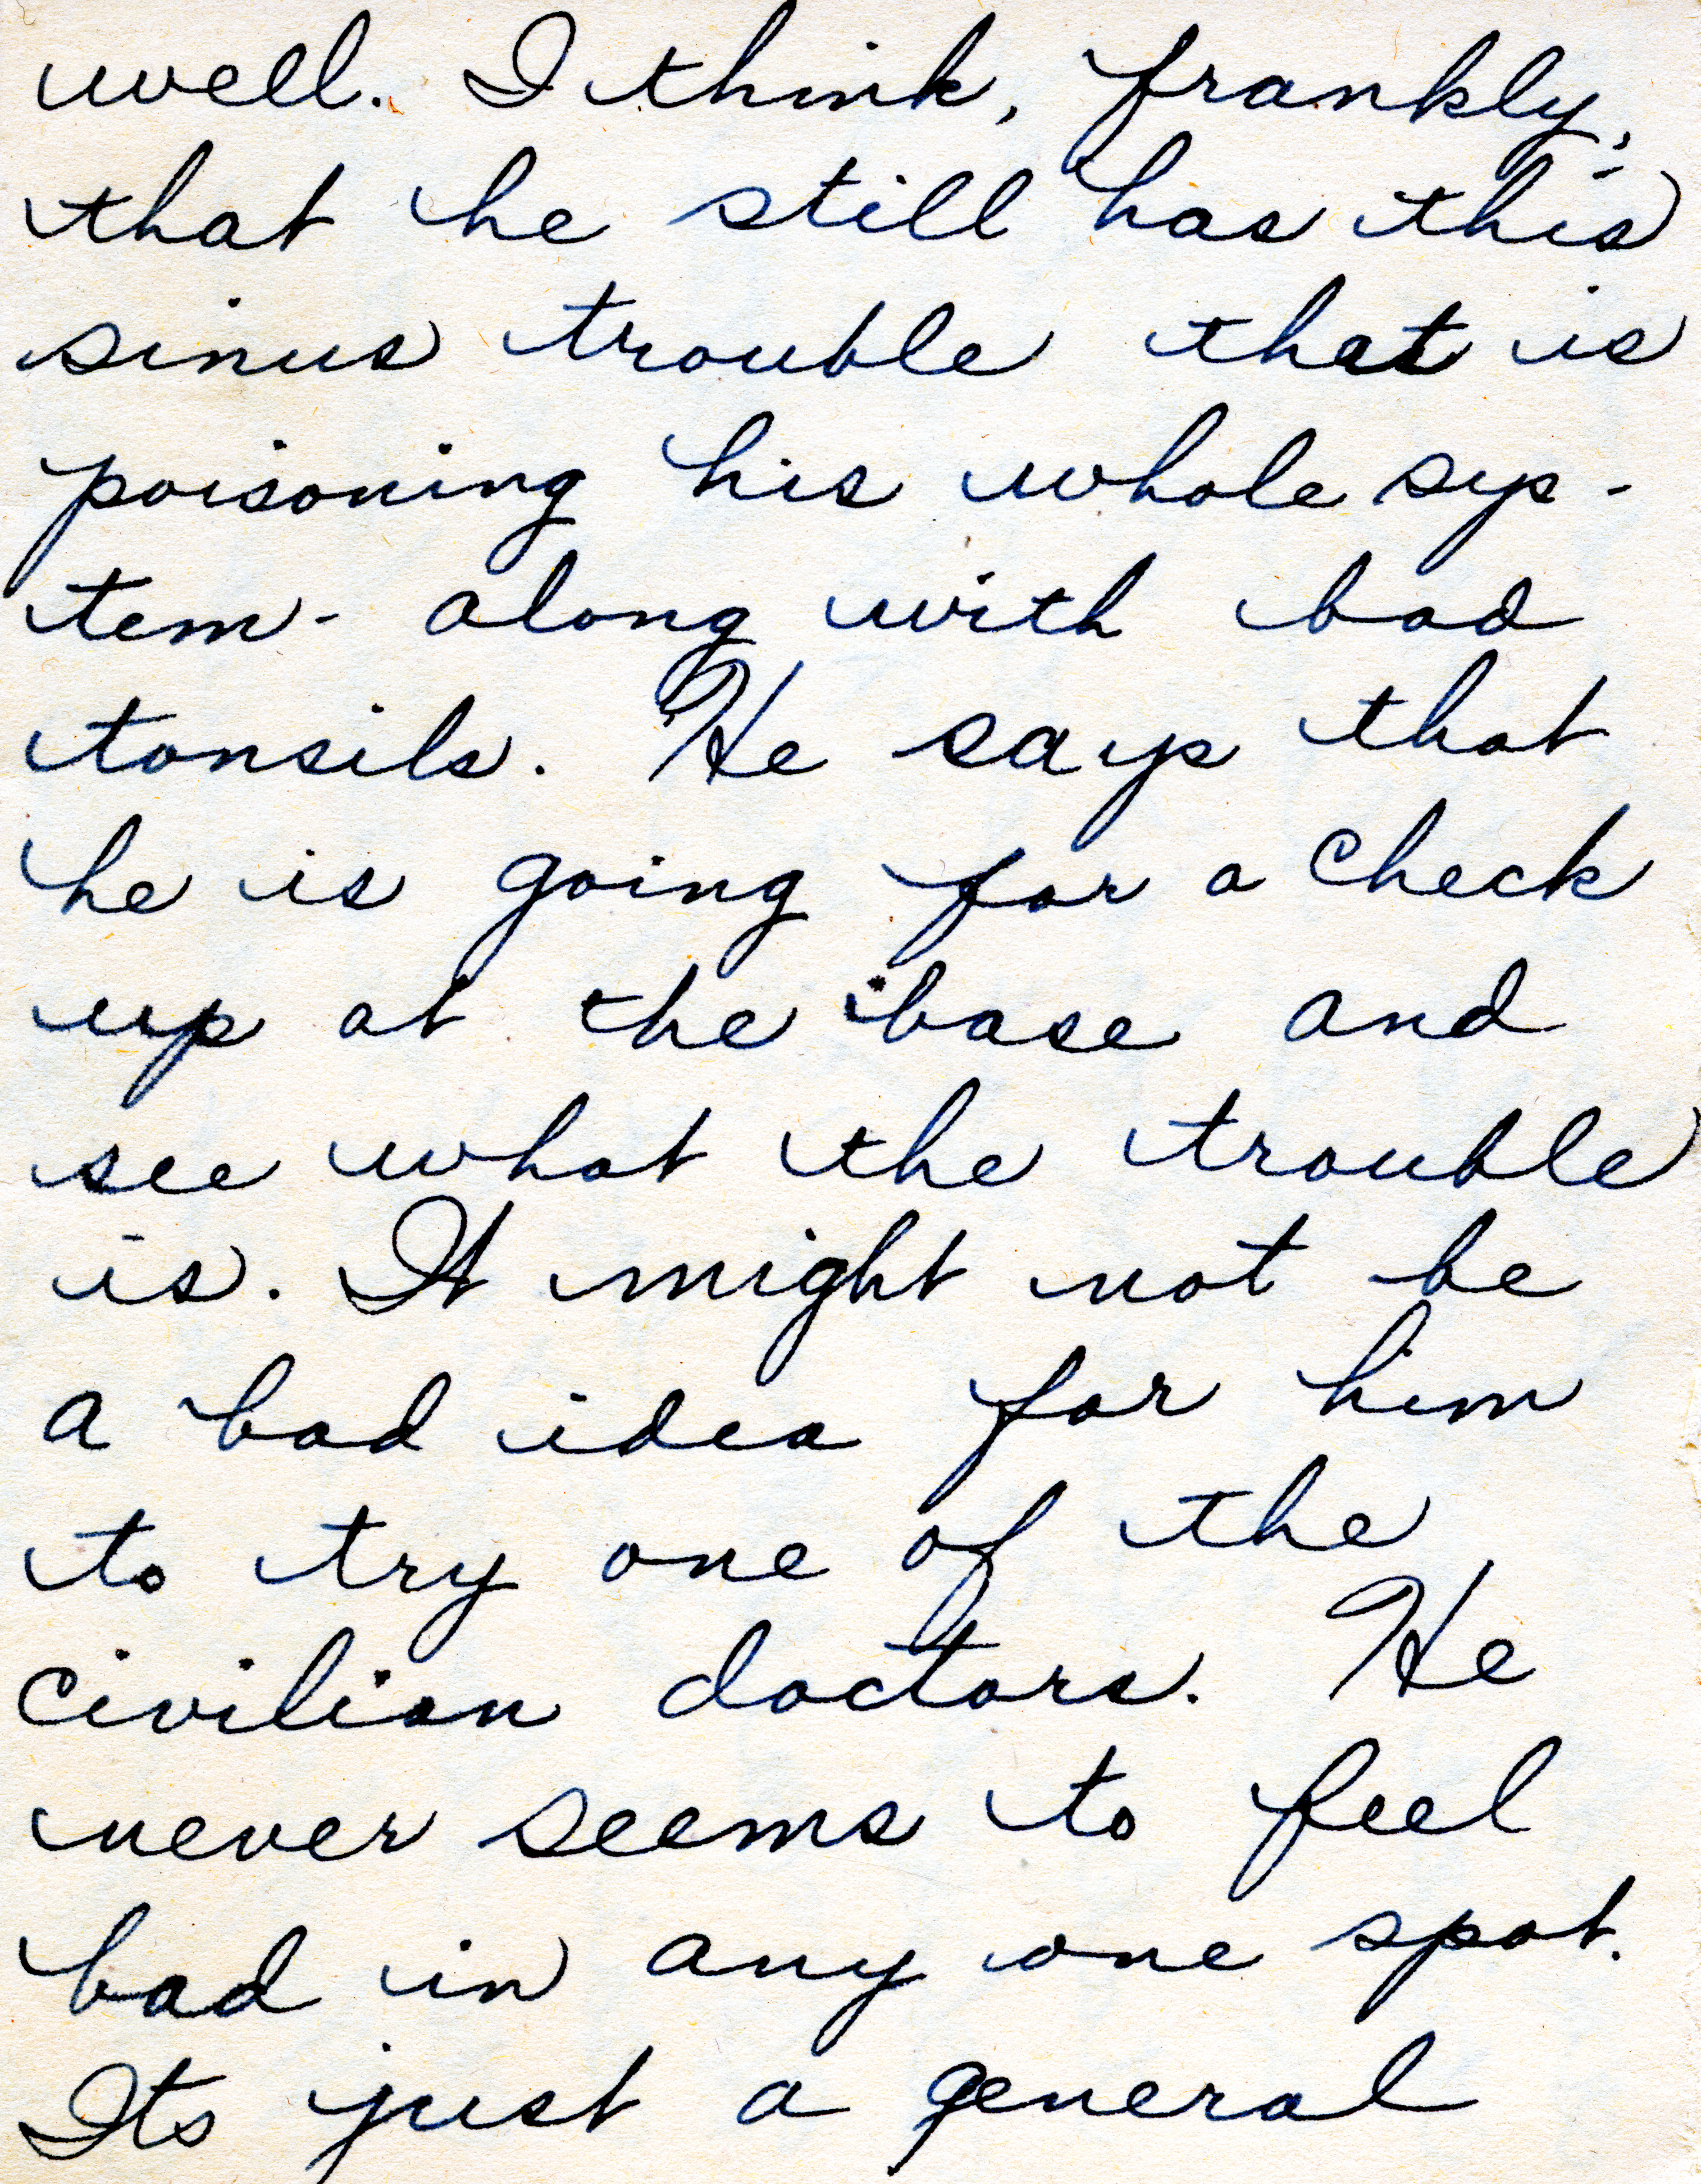 well. I think, frankly,
that he still has this
sinus trouble that is
poisoning his whole sys-
tem - along with bad
tonsils. He says that
he is going for a check
up at the base and
see what the trouble
is. It might not be
a bad idea for him
to try one of the
civilian doctors. He
never seems to feel
bad in any one spot.
Its just a general